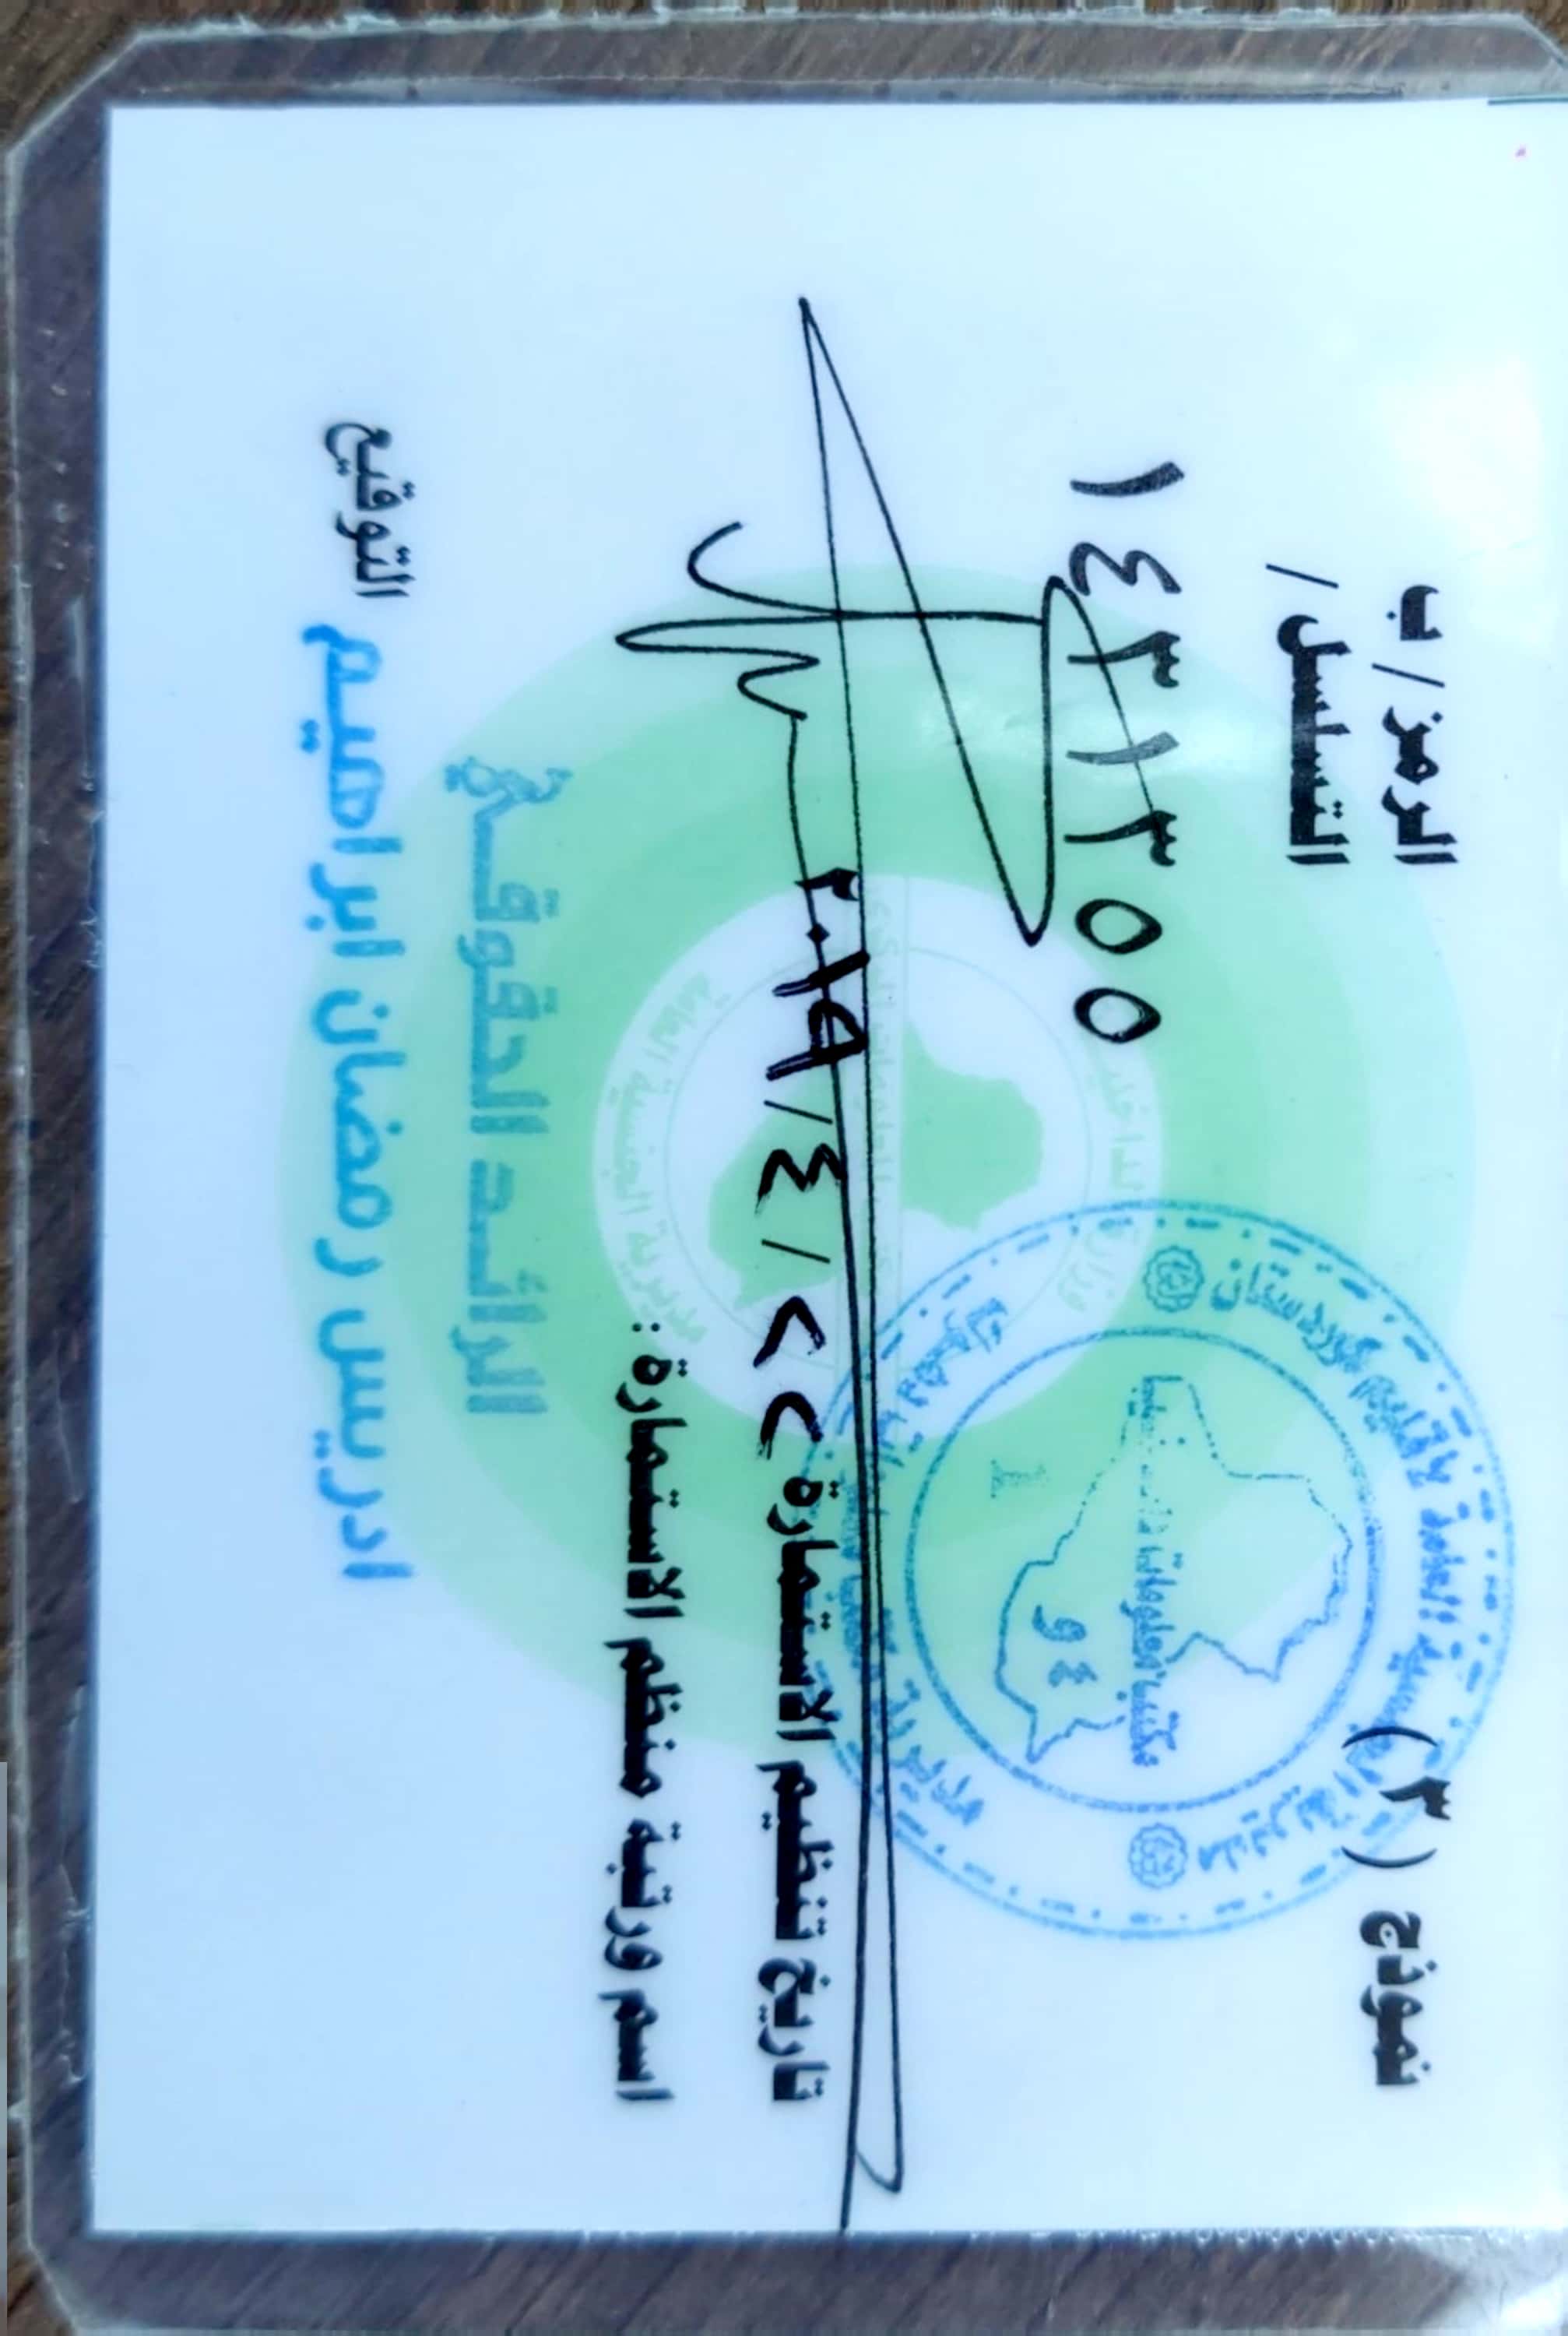 نموذج (٣)
الرمز / ب
التسلسل /
١٤٣١٣٥٥
مديرية الجنسية العامة لاقليم كوردستان
مكتب معلومات
٤ و
1
مديرية مكتب معلومات دهوك
وزارة الداخلية
مكتب المعلومات المركزي
مديرية الجنسية العامة
تاريخ تنظيم الاستمارة ٢٢ / ٤ / ٢٠١٩
اسم ورتبة منظم الاستمارة :
الرائد الحقوقي
ادريس رمضان ابراهيم التوقيع